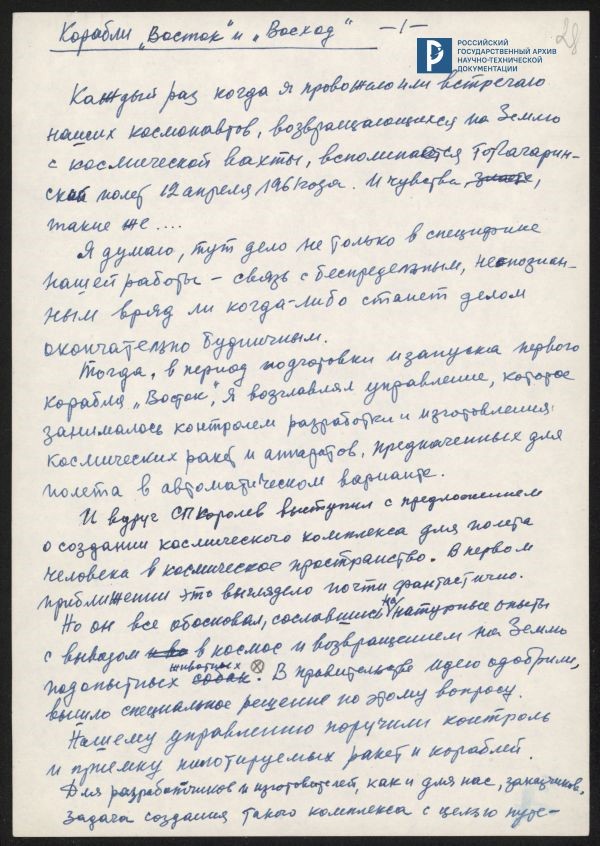 Корабли „Восток" и „Восход" -1-
28
РОССИЙСКИЙ
ГОСУДАРСТВЕННЫЙ АРХИВ
НАУЧНО-ТЕХНИЧЕСКОЙ
ДОКУМЕНТАЦИИ
Каждый раз когда я провожаю или встречаю
наших космонавтов, возвращающихся на Землю
с космической вахты, вспоминается тот гагарин-
ский полет 12 апреля 1961 года. И чувства, знаете,
такие же ....
Я думаю, тут дело не только в специфике
нашей работы – связь с беспредельным, непознан-
ным вряд ли когда-либо станет делом
окончательно будничным.
Тогда, в период подготовки и запуска первого
корабля „Восток", я возглавлял управление, которое
занималось контролем разработки и изготовления
космических ракет и аппаратов, предназначенных для
полета в автоматическом варианте.
И вдруг СП Королев выступил с предложением
о создании космического комплекса для полета
человека в космическое пространство. В первом
приближении это выглядело почти фантастично.
Но он все обосновал, сославшись на натурные опыты
с вывозом в космос и возвращением на Землю
животных
подопытных собак. В правительстве идею одобрили,
вышло специальное решение по этому вопросу.
Нашему управлению поручили контроль
и приемку пилотируемых ракет и кораблей.
Для разработчиков и изготовителей, как и для нас, заказчиков,
задача создания такого комплекса с целью путе-